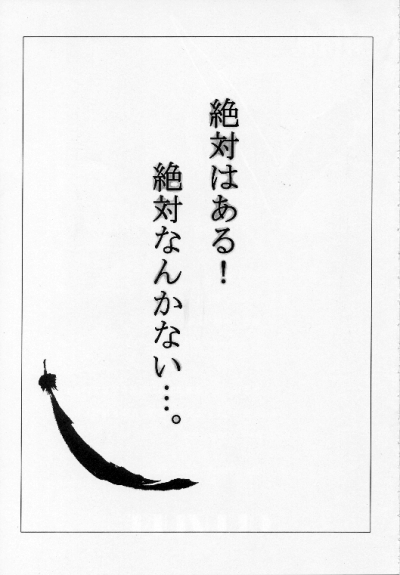 絶対はある！
絶対なんかない…。